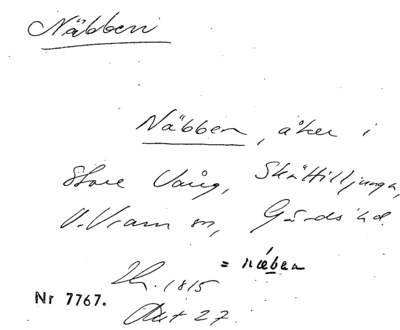 Näbben
Näbben, åker i
Store Vång, Skättilljunga,
V. Vram sn, Gärds hd.
= næben
1815
Nr 7767.
Akt 27